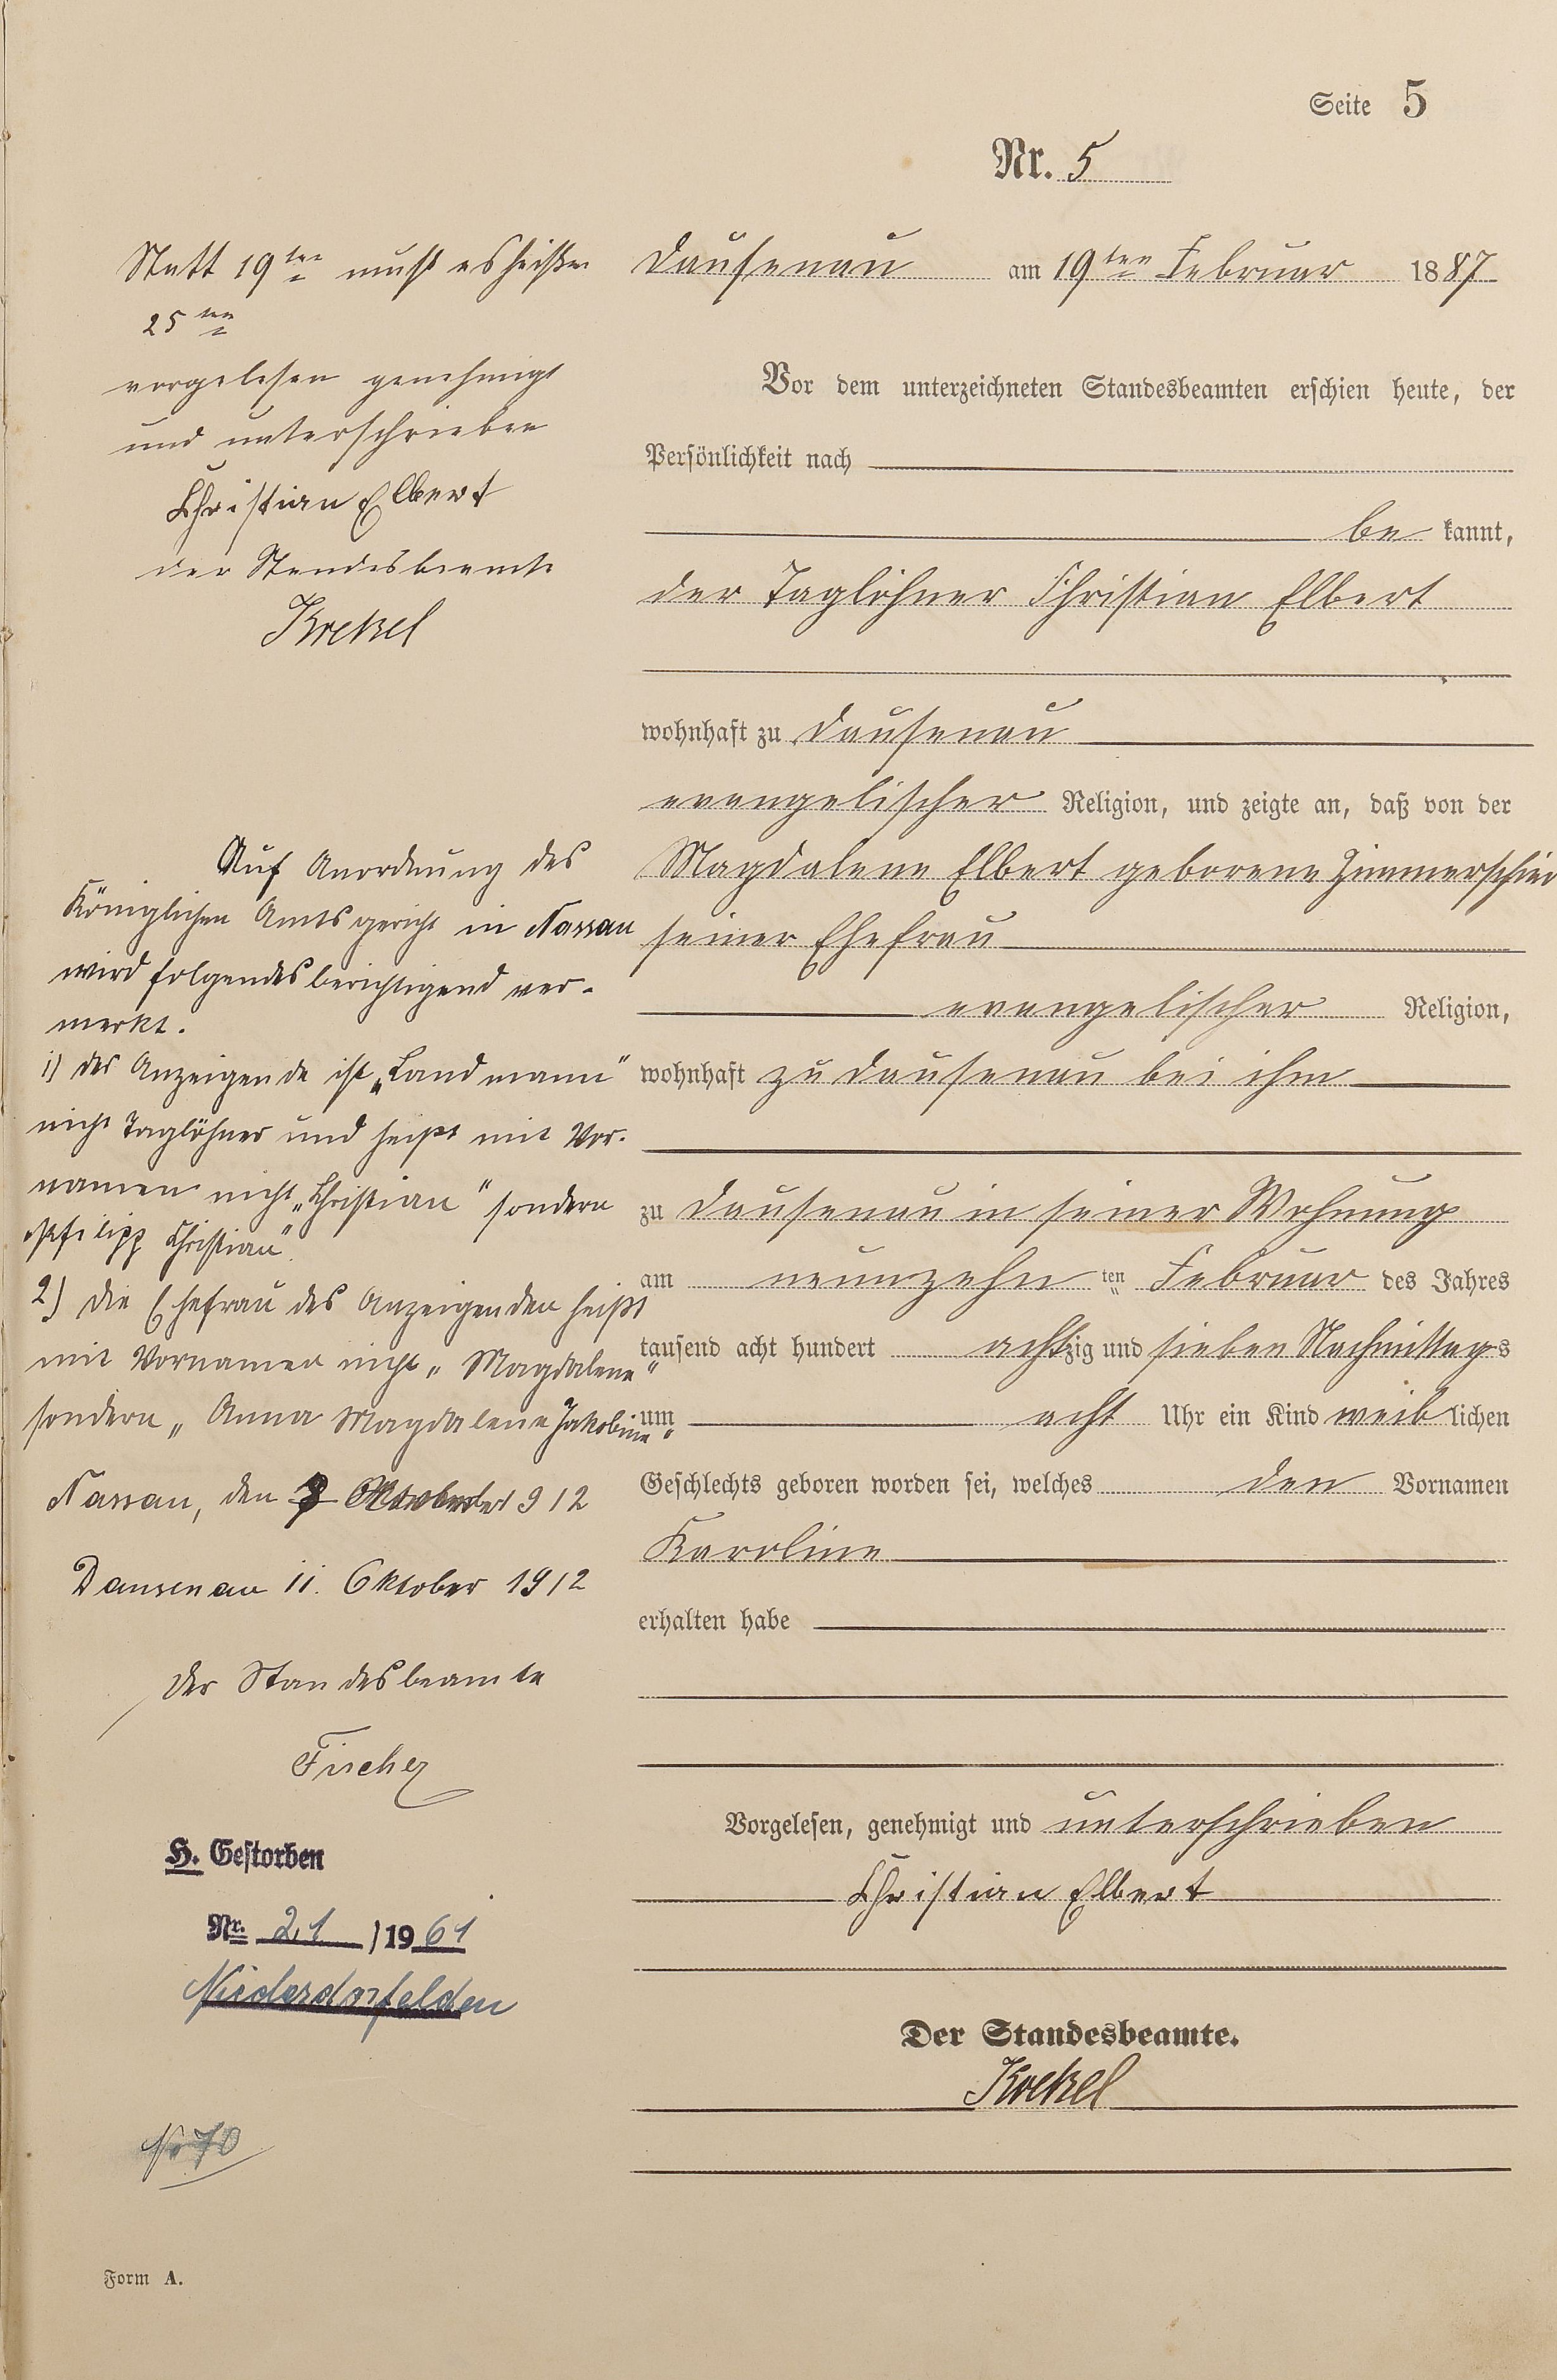 Seite 5
Nr. 5
Dausenau am 19ten Februar 1887
Vor dem unterzeichneten Standesbeamten erschien heute, der
Persönlichkeit nach
be kannt,
der Taglöhner Christian Elbert
wohnhaft zu Dausenau
evangelischer Religion, und zeigte an, daß von der
Magdalene Elbert geborene Zimmerschied
seiner Ehefrau
evangelischer Religion,
wohnhaft zu Dausenau bei ihm
zu Dausenau in seiner Wohnung
am neunzehn ten Februar des Jahres
tausend acht hundert achtzig und sieben Nachmittags
um acht Uhr ein Kind weiblichen
Geschlechts geboren worden sei, welches den Vornamen
Karoline
erhalten habe
Vorgelesen, genehmigt und unterschrieben
Christian Elbert
Der Standesbeamte.
Krekel
Statt 19ten muß es heißen
25ten
vorgelesen genehmigt
und unterschrieben
Christian Elbert
der Standesbeamte
Krekel
Auf Anordnung des
Königlichen Amtsgericht in Nassau
wird folgendes berichtigend ver-
merkt.
1) der Anzeigende ist „Landmann"
nicht Taglöhner und heißt mit Vor-
namen nicht „Christian" sondern
„Philipp Christian".
2) Die Ehefrau des Anzeigenden heißt
mit Vornamen nicht „Magdalene"
sondern „Anna Magdalene Jakobine"
Nassau, den Oktober 1912
Dausenau 11. Oktober 1912
Der Standesbeamte
Fischer
H. Gestorben
Nr. 21 / 1961
Niederdorfelden
No 70
Form A.